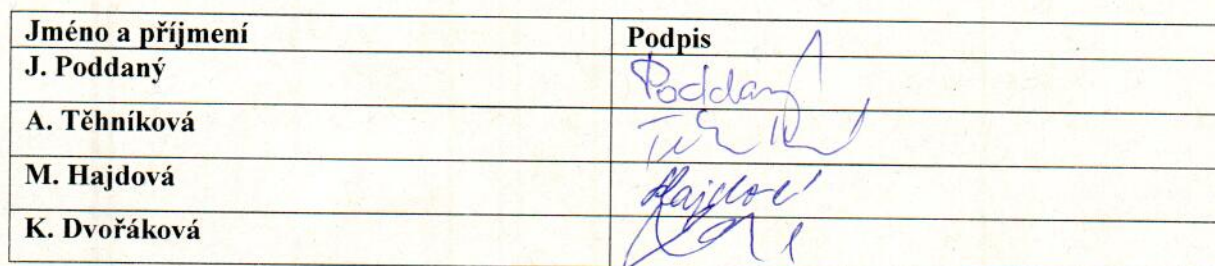 Jméno a příjmení Podpis
J. Poddaný Poddaný
A. Těhníková
M. Hajdová Hajdová
K. Dvořáková